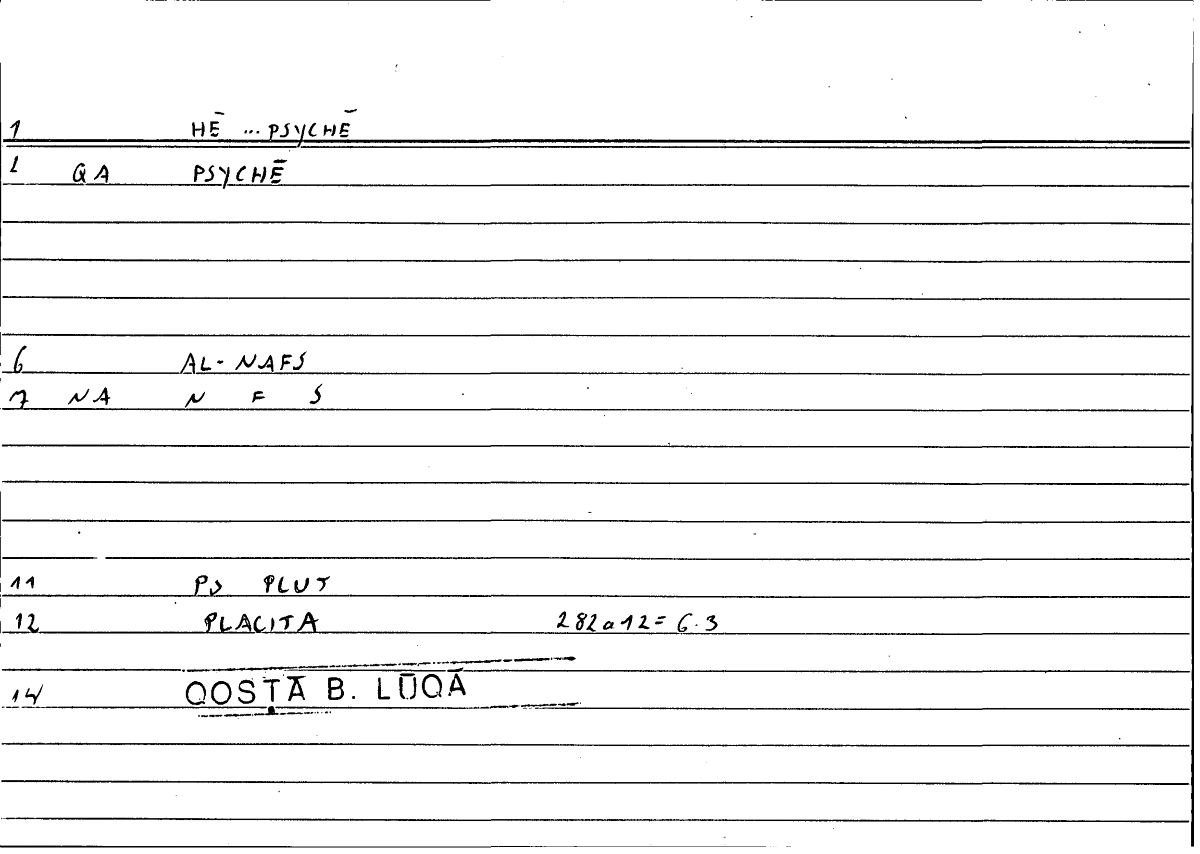 1 HĒ ... PSYCHĒ
2 QA PSYCHĒ
6 AL-NAFS
7 NA N F S
11 PS PLUT
12 PLACITA 282a12= 6.3
14 QOSṬĀ B. LŪQĀ